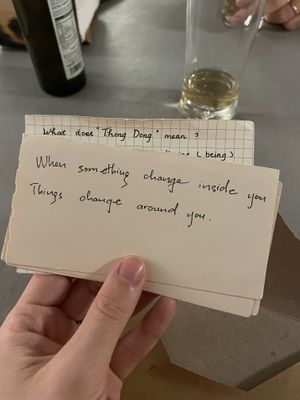 What does "Thong Dong" mean ?
(being)
When something change inside you
Things change around you.